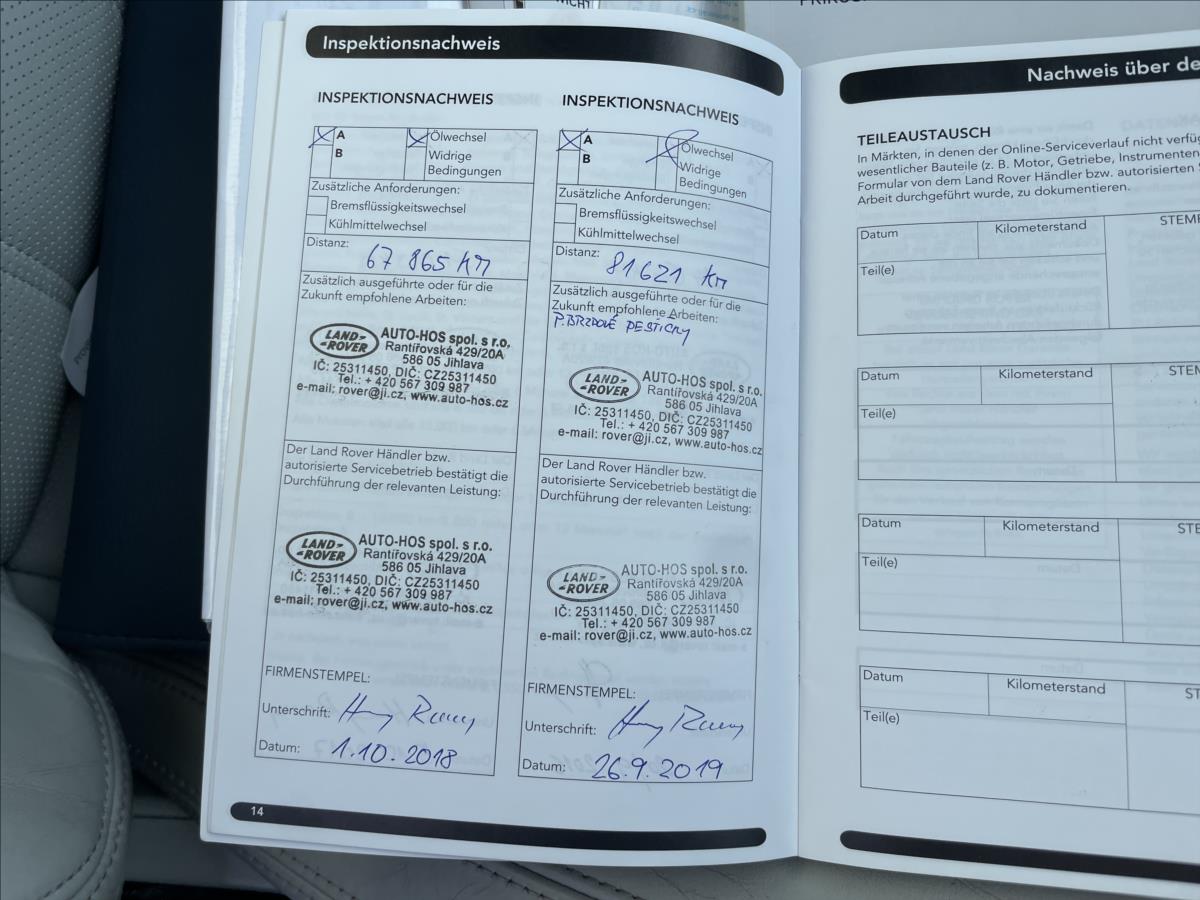 NICHT
Inspektionsnachweis
INSPEKTIONSNACHWEIS
A
Ölwechsel
B
Widrige
Bedingungen
Zusätzliche Anforderungen:
Bremsflüssigkeitswechsel
Kühlmittelwechsel
Distanz: 67 865 KM
Zusätzlich ausgeführte oder für die
Zukunft empfohlene Arbeiten:
LAND-
-ROVER
AUTO-HOS spol. s r.o.
Rantířovská 429/20A
586 05 Jihlava
IČ: 25311450, DIČ: CZ25311450
Tel.: + 420 567 309 987
e-mail: rover@ji.cz, www.auto-hos.cz
Der Land Rover Händler bzw.
autorisierte Servicebetrieb bestätigt die
Durchführung der relevanten Leistung:
LAND-
-ROVER
AUTO-HOS spol. s r.o.
Rantířovská 429/20A
586 05 Jihlava
IČ: 25311450, DIČ: CZ25311450
Tel.: + 420 567 309 987
e-mail: rover@ji.cz, www.auto-hos.cz
FIRMENSTEMPEL:
Unterschrift:
Datum: 1.10.2018
14
INSPEKTIONSNACHWEIS
A
Ölwechsel
B
Widrige
Bedingungen
Zusätzliche Anforderungen:
Bremsflüssigkeitswechsel
Kühlmittelwechsel
Distanz: 81621 KM
Zusätzlich ausgeführte oder für die
Zukunft empfohlene Arbeiten:
P.BRZDOVÉ DESTICKY
LAND-
-ROVER
AUTO-HOS spol. s r.o.
Rantířovská 429/20A
586 05 Jihlava
IČ: 25311450, DIČ: CZ25311450
Tel.: + 420 567 309 987
e-mail: rover@ji.cz, www.auto-hos.cz
Der Land Rover Händler bzw.
autorisierte Servicebetrieb bestätigt die
Durchführung der relevanten Leistung:
LAND-
-ROVER
AUTO-HOS spol. s r.o.
Rantířovská 429/20A
586 05 Jihlava
IČ: 25311450, DIČ: CZ25311450
Tel.: + 420 567 309 987
e-mail: rover@ji.cz, www.auto-hos.cz
FIRMENSTEMPEL:
Unterschrift:
Datum: 26.9.2019
Nachweis über de
TEILEAUSTAUSCH
In Märkten, in denen der Online-Serviceverlauf nicht verfüg
wesentlicher Bauteile (z. B. Motor, Getriebe, Instrumenten
Formular von dem Land Rover Händler bzw. autorisierten S
Arbeit durchgeführt wurde, zu dokumentieren.
Datum Kilometerstand STEMP
Teil(e)
Datum Kilometerstand STEM
Teil(e)
Datum Kilometerstand STE
Teil(e)
Datum Kilometerstand ST
Teil(e)